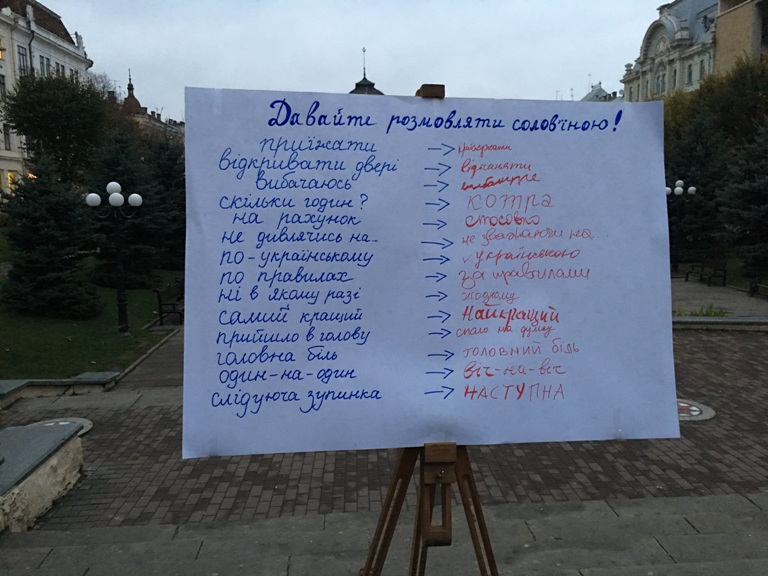 Давайте розмовляти солов'їною!
приїжати →
відкривати двері → відчиняти
вибачаюсь →
скільки годин? → котра
на рахунок → стосовно
не дивлячись на → не зважаючи на
по-українському → українською
по правилах → за правилами
ні в якому разі → жодному
самий кращий → Найкращий
прийшло в голову → спало на думку
головна біль → головний біль
один-на-один → віч-на-віч
слідуюча зупинка → НАСТУПНА